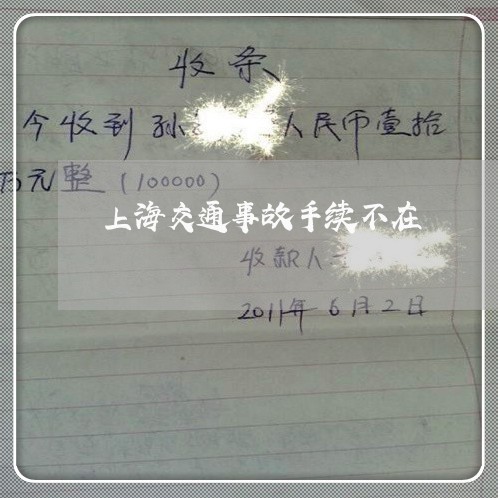 收条
今收到孙 人民币壹拾
万元整(100000)
上海交通事故手续不在
收款人
2011年6月2日